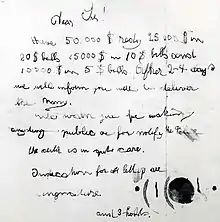 Dear Sir!
Have 50.000 $ redy 25 000 $ in
20 $ bills 15000 $ in 10 $ bills and
10000 $ in 5 $ bills After 2-4 days
we will inform you were to deliver
the Mony.
We warn you for making
anyding public or for notify the
the child is in gut care.
Indication for all letters are
and 3 holes